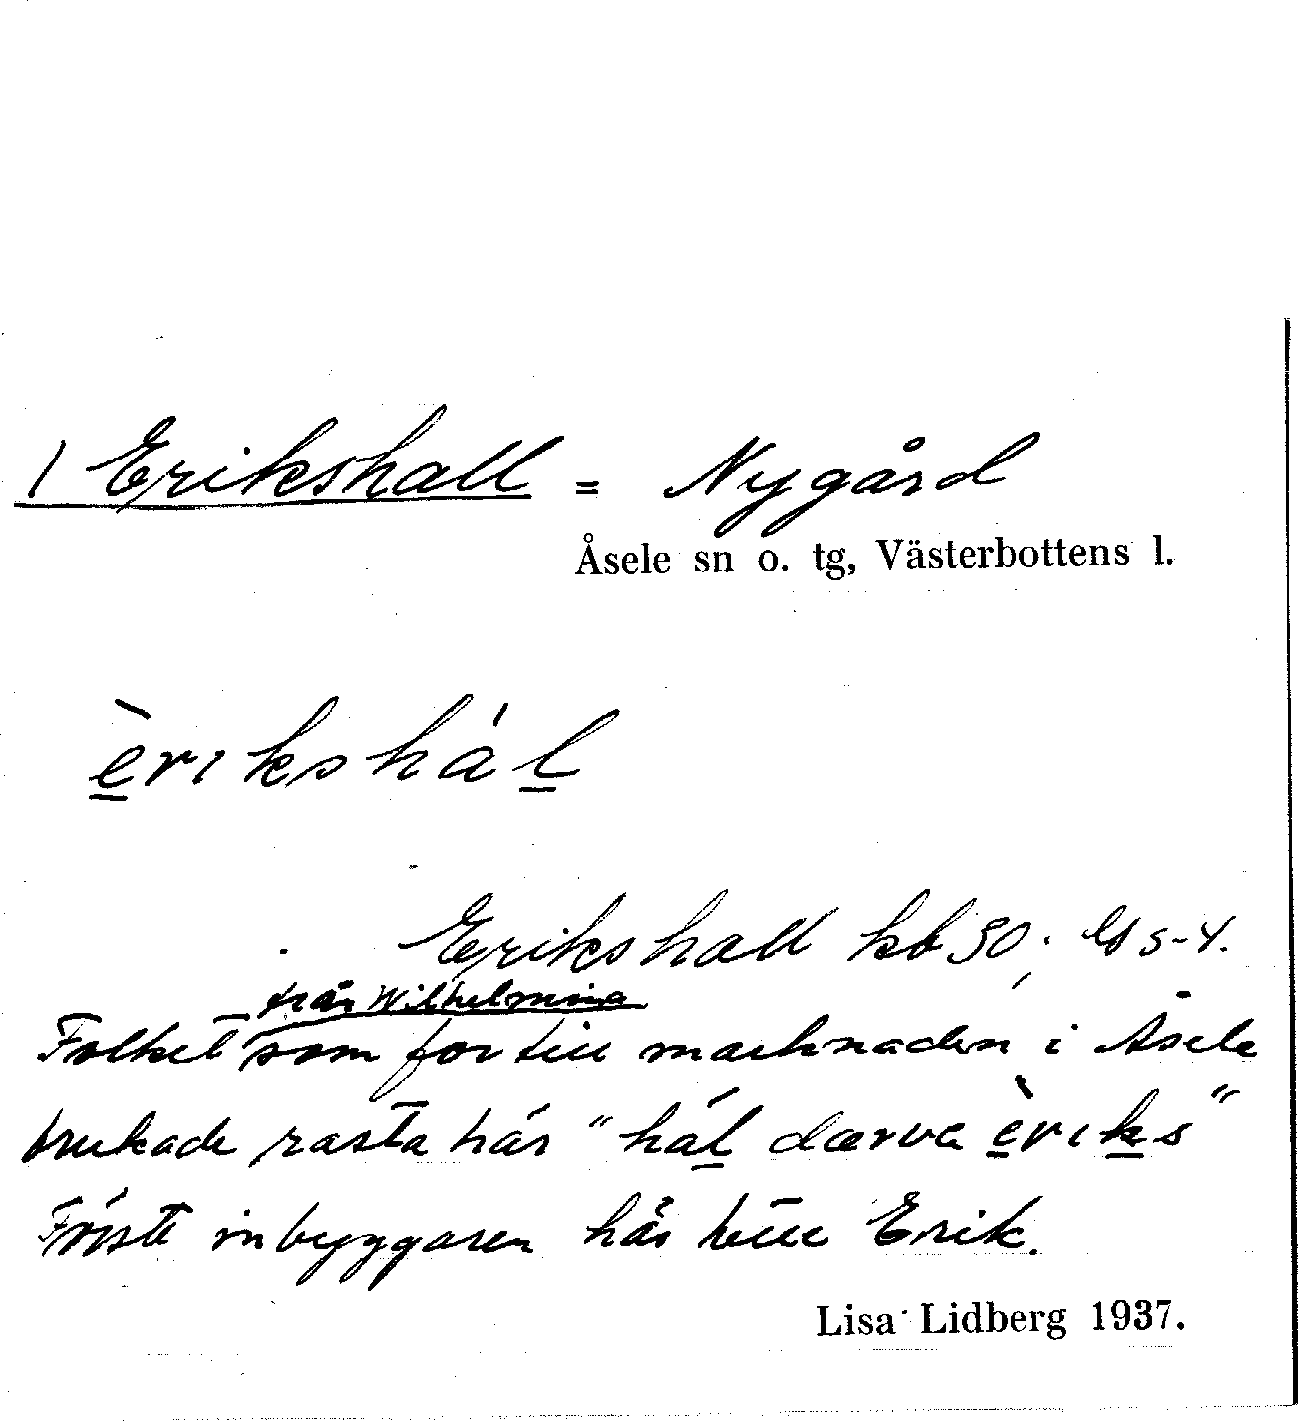 1 Erikshall = Nygård
Åsele sn o. tg, Västerbottens l.
èrıkshál
Erikshall kb 30; s-4.
från Wilhelmina
Folket som for till marknaden i Åsele
brukade rasta här "hál darva èrıks"
Förste inbyggaren här hette Erik.
Lisa Lidberg 1937.